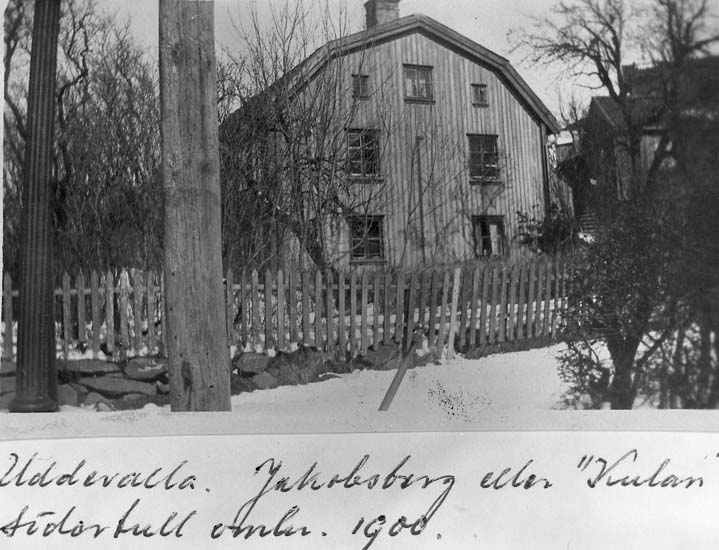 Uddevalla. Jakobsberg eller "Kulan"
Södertull omkr. 1900.